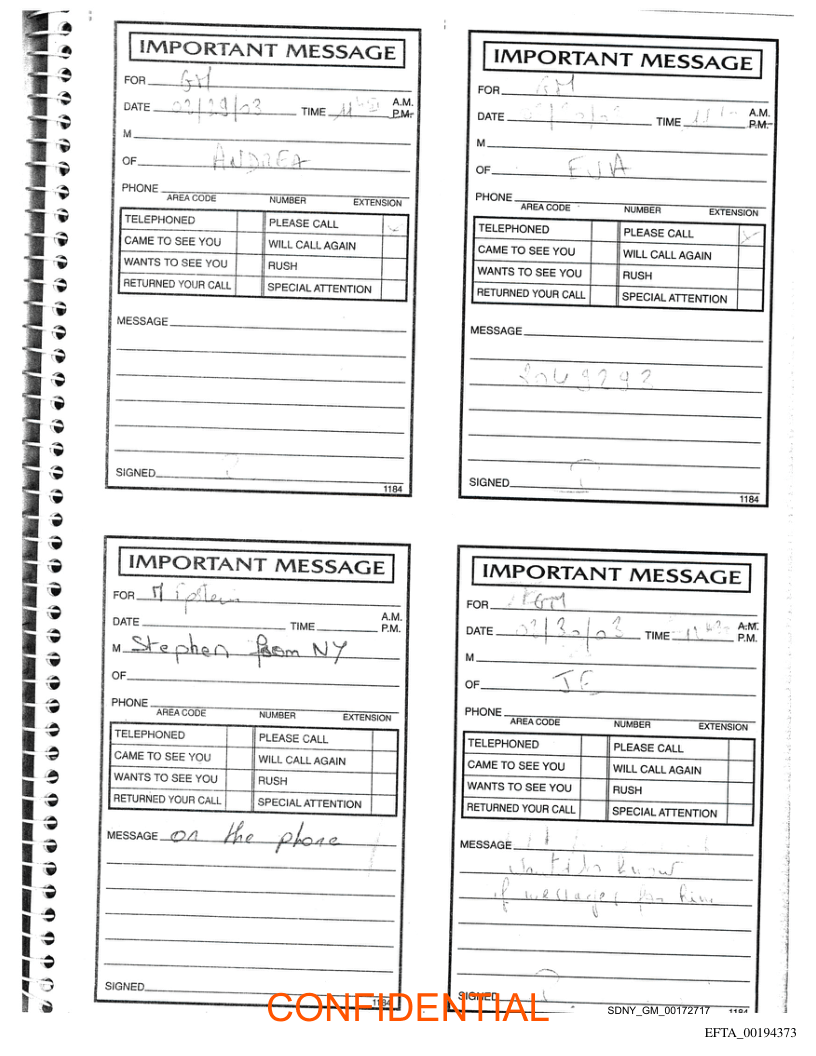 IMPORTANT MESSAGE
FOR GM
DATE 02/29/03 TIME A.M. P.M.
M
OF ANDREA
PHONE
AREA CODE NUMBER EXTENSION
TELEPHONED PLEASE CALL
CAME TO SEE YOU WILL CALL AGAIN
WANTS TO SEE YOU RUSH
RETURNED YOUR CALL SPECIAL ATTENTION
MESSAGE
SIGNED
1184
IMPORTANT MESSAGE
FOR GM
DATE TIME A.M. P.M.
M
OF EVA
PHONE
AREA CODE NUMBER EXTENSION
TELEPHONED PLEASE CALL
CAME TO SEE YOU WILL CALL AGAIN
WANTS TO SEE YOU RUSH
RETURNED YOUR CALL SPECIAL ATTENTION
MESSAGE
SIGNED
1184
IMPORTANT MESSAGE
FOR
DATE TIME A.M. P.M.
M Stephen from NY
OF
PHONE
AREA CODE NUMBER EXTENSION
TELEPHONED PLEASE CALL
CAME TO SEE YOU WILL CALL AGAIN
WANTS TO SEE YOU RUSH
RETURNED YOUR CALL SPECIAL ATTENTION
MESSAGE on the phone
SIGNED
1184
IMPORTANT MESSAGE
FOR GM
DATE 02/30/03 TIME A.M. P.M.
M
OF JE
PHONE
AREA CODE NUMBER EXTENSION
TELEPHONED PLEASE CALL
CAME TO SEE YOU WILL CALL AGAIN
WANTS TO SEE YOU RUSH
RETURNED YOUR CALL SPECIAL ATTENTION
MESSAGE
know
if messages for him
SIGNED
1184
CONFIDENTIAL
SDNY_GM_00172717
EFTA_00194373